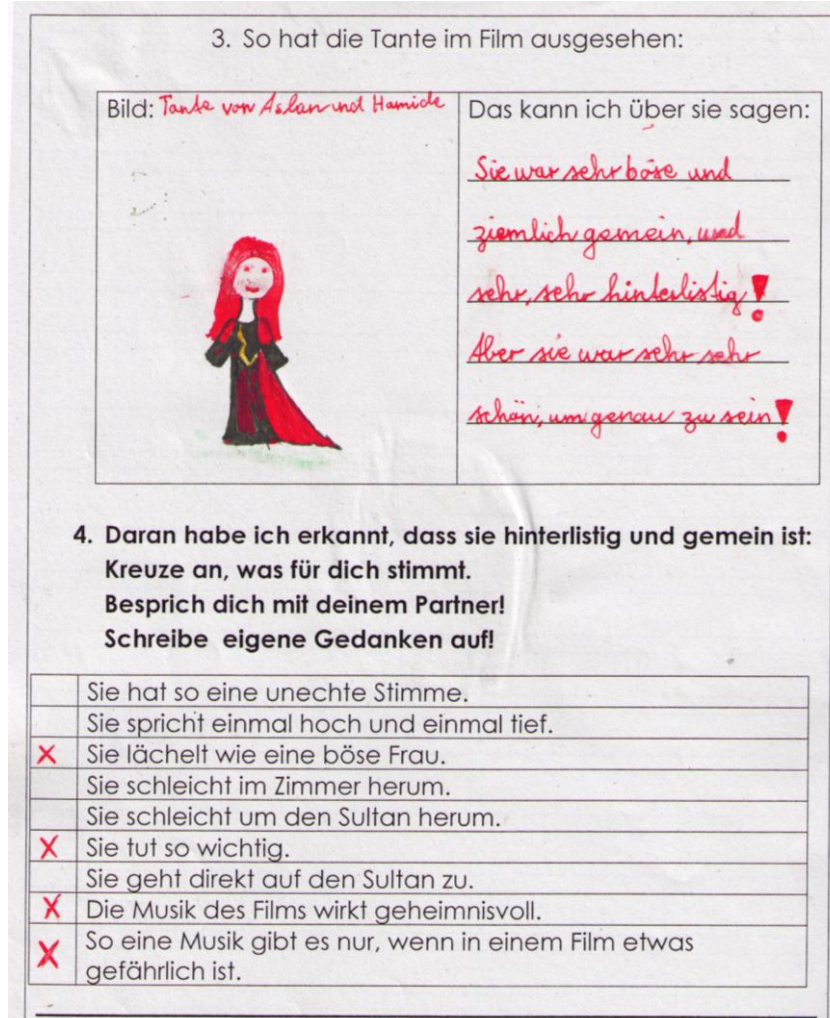 3. So hat die Tante im Film ausgesehen:
Bild: Tante von Aslan und Hamide
Das kann ich über sie sagen:
Sie war sehr böse und
ziemlich gemein, und
sehr, sehr hinterlistig!
Aber sie war sehr sehr
schön, um genau zu sein!
4. Daran habe ich erkannt, dass sie hinterlistig und gemein ist:
Kreuze an, was für dich stimmt.
Besprich dich mit deinem Partner!
Schreibe eigene Gedanken auf!
Sie hat so eine unechte Stimme.
Sie spricht einmal hoch und einmal tief.
X Sie lächelt wie eine böse Frau.
Sie schleicht im Zimmer herum.
Sie schleicht um den Sultan herum.
X Sie tut so wichtig.
Sie geht direkt auf den Sultan zu.
X Die Musik des Films wirkt geheimnisvoll.
X So eine Musik gibt es nur, wenn in einem Film etwas
gefährlich ist.